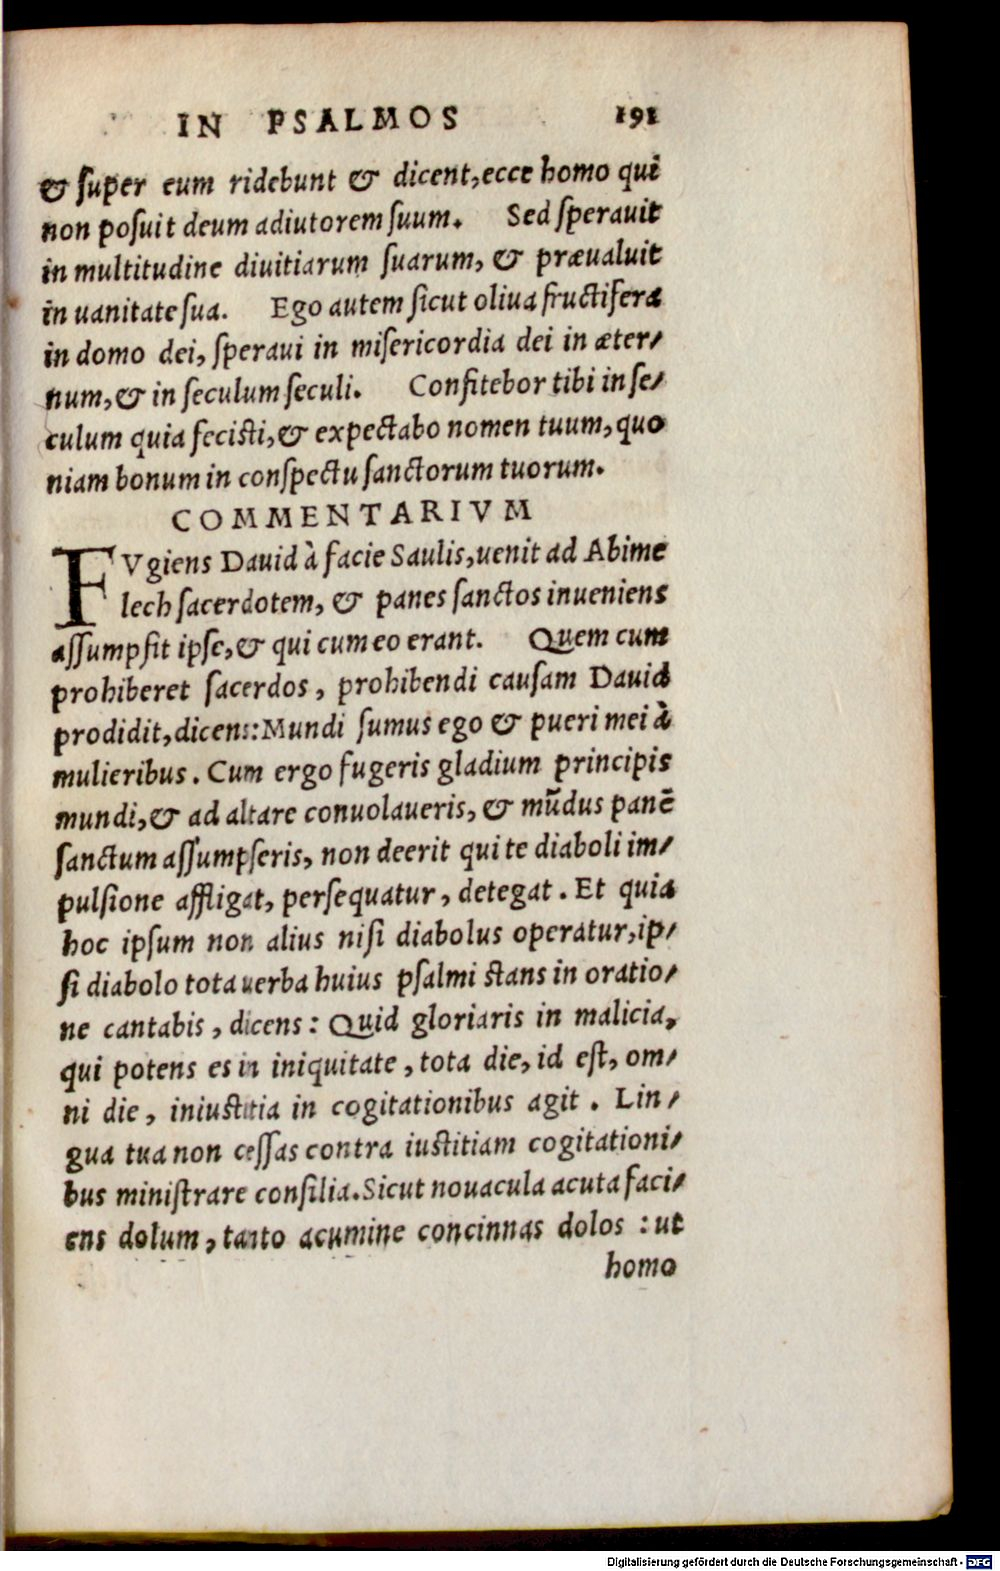 IN PSALMOS 191
& super eum ridebunt & dicent, ecce homo qui
non posuit deum adiutorem suum. Sed sperauit
in multitudine diuitiarum suarum, & præualuit
in uanitate sua. Ego autem sicut oliua fructifera
in domo dei, speraui in misericordia dei in æter/
num, & in seculum seculi. Confitebor tibi in se/
culum quia fecisti, & expectabo nomen tuum, quo
niam bonum in conspectu sanctorum tuorum.
COMMENTARIVM
FVgiens Dauid à facie Saulis, uenit ad Abime
lech sacerdotem, & panes sanctos inueniens
assumpsit ipse, & qui cum eo erant. Quem cum
prohiberet sacerdos, prohibendi causam Dauid
prodidit, dicens: Mundi sumus ego & pueri mei à
mulieribus. Cum ergo fugeris gladium principis
mundi, & ad altare conuolaueris, & mūdus panē
sanctum assumpseris, non deerit qui te diaboli im/
pulsione affligat, persequatur, detegat. Et quia
hoc ipsum non alius nisi diabolus operatur, ip/
si diabolo tota uerba huius psalmi stans in oratio/
ne cantabis, dicens: Quid gloriaris in malicia,
qui potens es in iniquitate, tota die, id est, om/
ni die, iniustitia in cogitationibus agit. Lin/
gua tua non cessas contra iustitiam cogitationi/
bus ministrare consilia. Sicut nouacula acuta faci/
ens dolum, tanto acumine concinnas dolos: ut
homo
Digitalisierung gefördert durch die Deutsche Forschungsgemeinschaft - DFG